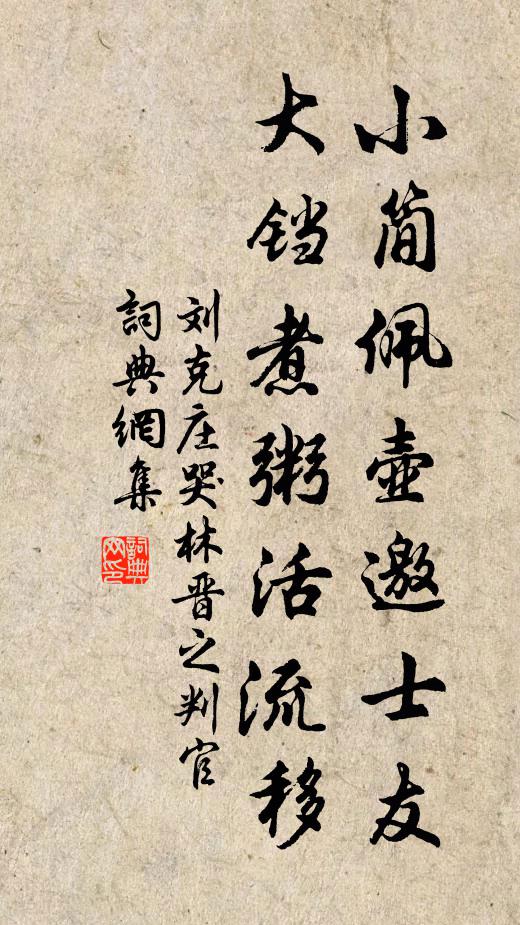 小简佩壶邀士友
大铛煮粥活流移
刘克庄哭林晋之判官
詞典網集
詞典网印